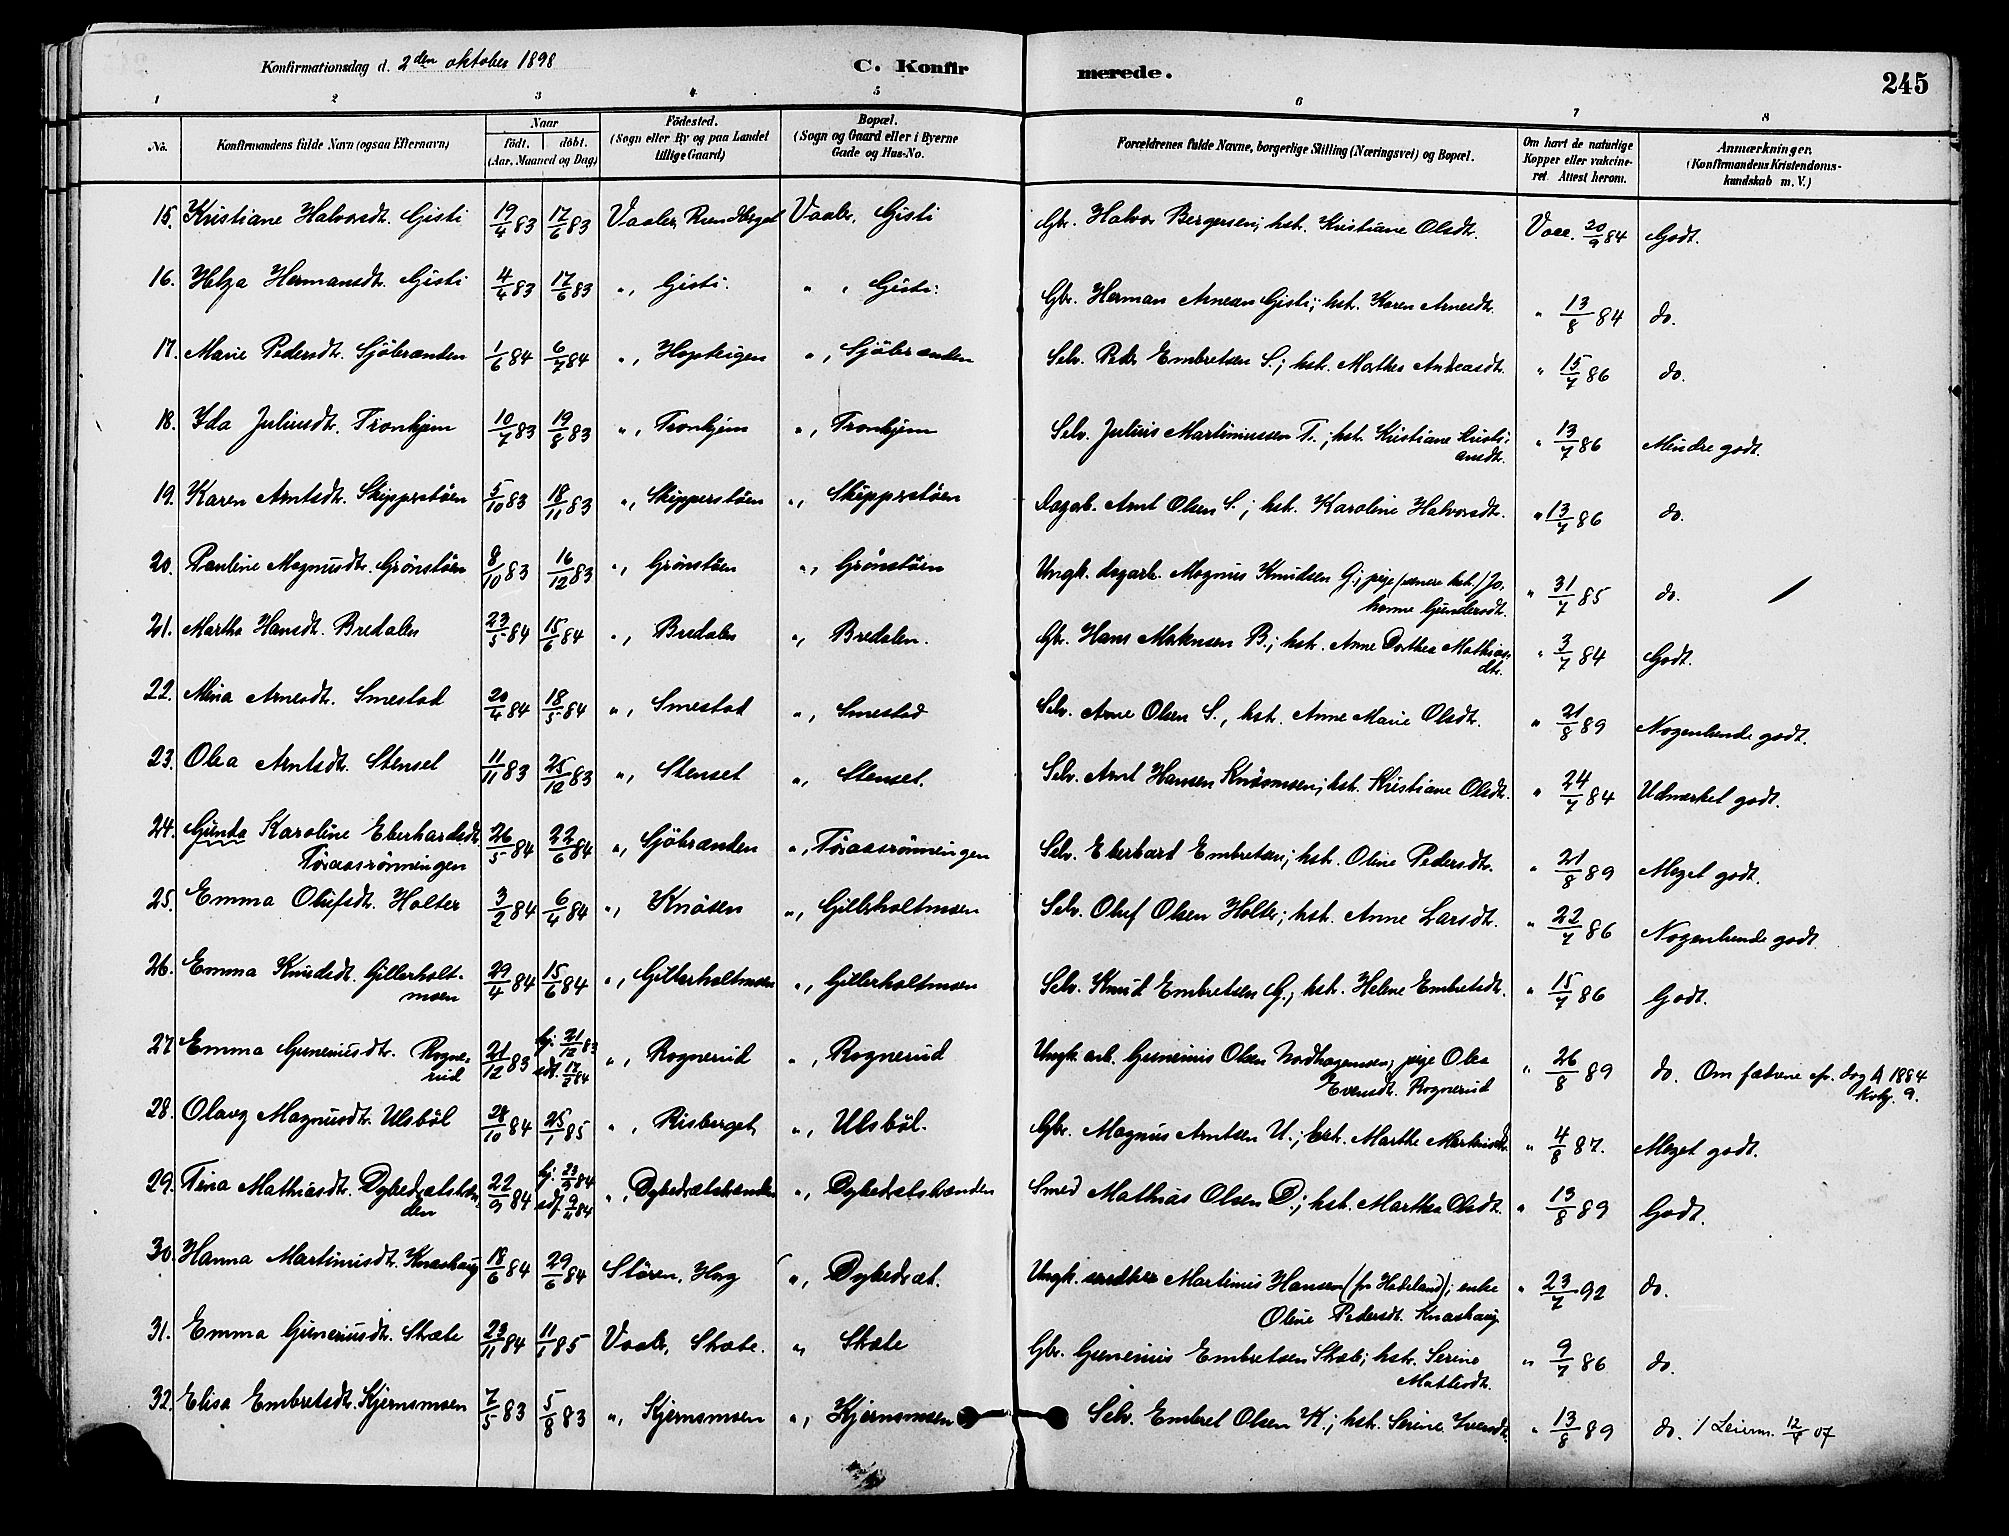 Konfirmationsdag d. 2den oktober 1898 C. Konfirmerede. 245
1 2 3 4 5 6 7 8
No. Konfirmandens fulde Navn (ogsaa Efternavn) Naar födt. döbt. (Aar, Maaned og Dag) Födested. (Sogn eller By og paa Landet tillige Gaard) Bopæl. (Sogn og Gaard eller i Byerne Gade og Hus-No. Forældrenes fulde Navne, borgerlige Stilling (Næringsvei) og Bopæl. Om havt de naturlige Kopper eller vakcineret. Attest herom. Anmærkninger. (Konfirmandens Kristendomskundskab m. V.)
15. Kristiane Halvorsdt. Gisti 19/4 83 17/6 83 Vaaler, Rundberget Vaaler, Gisti Gbr. Halvor Bergersen; hst. Kristiane Olsdt. Vacc. 20/9 84 Godt.
16. Helga Hermansdt. Gisti 4/4 83 17/6 83 ", Gisti. ", Gisti. Gbr. Herman Arnesen Gisti; hst. Karen Arnesdt. " 13/8 84 do.
17. Marie Pedersdt. Sjöbranden 1/6 84 6/7 84 ", ", Sjöbranden Selv. Peder Embretsen S.; hst. Marthea Andreasdt. " 15/7 86 do.
18. Ida Juliusdt. Tronhjem 10/7 83 19/8 83 ", Tronhjem ", Tronhjem Selv. Julius Martiniussen T.; hst. Kristiane Kristiansdt. " 13/7 86 Mindre godt.
19. Karen Arntsdt. Skipperstöen 5/10 83 18/11 83 ", Skipperstöen ", Skipperstöen Dagarb. Arnt Olsen S.; hst. Karoline Halvorsdt. " 13/7 86 do.
20. Pauline Magnusdt. Grönstöen 8/10 83 16/12 83 ", Grönstöen ", Grönstöen Ungk. dagarb. Magnus Knudsen G.; pige (senere hst.) Johanne Gundersdt. " 31/7 85 do. /
21. Martha Hansdt. Bredalen 23/5 84 15/6 84 ", Bredalen ", Bredalen. Gbr. Hans B.; hst. Anne Dorthea Mathiasdt. " 3/7 84 Godt.
22. Mina Arnesdt. Smestad 20/4 84 18/5 84 ", Smestad ", Smestad Selv. Arne Olsen S., hst. Anne Marie Olsdt. " 21/8 89 Nogenlunde godt.
23. Olea Arntsdt. Stenset 11/11 83 25/12 83 ", Stenset ", Stenset. Selv. Arnt Hansen Knösmoen; hst. Kristiane Olsdt. " 24/7 84 Udmærket godt.
24. Gunda Karoline Eberhardsdt.
Töraasrönningen 26/5 84 22/6 84 ", Sjöbranden ", Töraasrönningen Selv. Eberhard Embretsen; hst. Oline Pedersdt. " 21/8 89 Meget godt.
25. Emma Olufsdt. Holter 3/2 84 6/4 84 ", Knösen ", Gillerholtmoen Selv. Oluf Olsen Holter; hst. Anne Larsdt. " 22/7 86 Nogenlunde godt.
26. Emma Knudsdt. Gillerholtmoen 29/4 84 15/6 84 ", Gillerholtmoen ", Gillerholtmoen Selv. Knud Embretsen G.; hst. Helene Embretsdt. " 15/7 86 Godt.
27 Emma Guneriusdt. Rognerud 21/12 83 hj. 21/12 83 sdf. 17/2 84 ", Rognerud ", Rognerud Ungk. arb. Gunerius Olsen Nordhagenmoen; pige Olea
Evensdt. Rognerud " 26/8 89 do. Om fadrene efr. dag A 1884 9.
28. Olaug Magnusdt. Ulsböl 24/10 84 25/1 85 ", Risberget ", Ulsböl. Gbr. Magnus Arntsen U.; hst. Marthe " 4/8 87. Meget godt.
29. Tina Mathiasdt. Dybedrætstranden 22/3 84 hj. 23/3 84 sdf. 9/4 84 ", Dybedrætstranden ", Dybedrætstranden Smed Mathias Olsen D.; hst. Marthea Olsdt. " 13/8 89 Godt.
30. Hanna Martinusdt. Knashaug 18/6 84 29/6 84 Stören, Hog ", Dybedræt. Ungk. Martinus Hansen (fr Hadeland); enke
Oline Pedersdt. Knashaug " 23/7 92 do.
31. Emma Guneriusdt. Skæte 23/11 84 11/1 85 Vaaler, Skæte. " Skæte Gbr. Gunerius Embretsen Skæte; hst. Serine
" 9/7 86 do.
32. Elisa Embretsdt. Kjernsmoen 7/5 83 5/8 83 ", Kjernsmoen ", Kjernsmoen Selv. Embret Olsen K.; hst. Serine Iversdt. " 13/8 89 do.